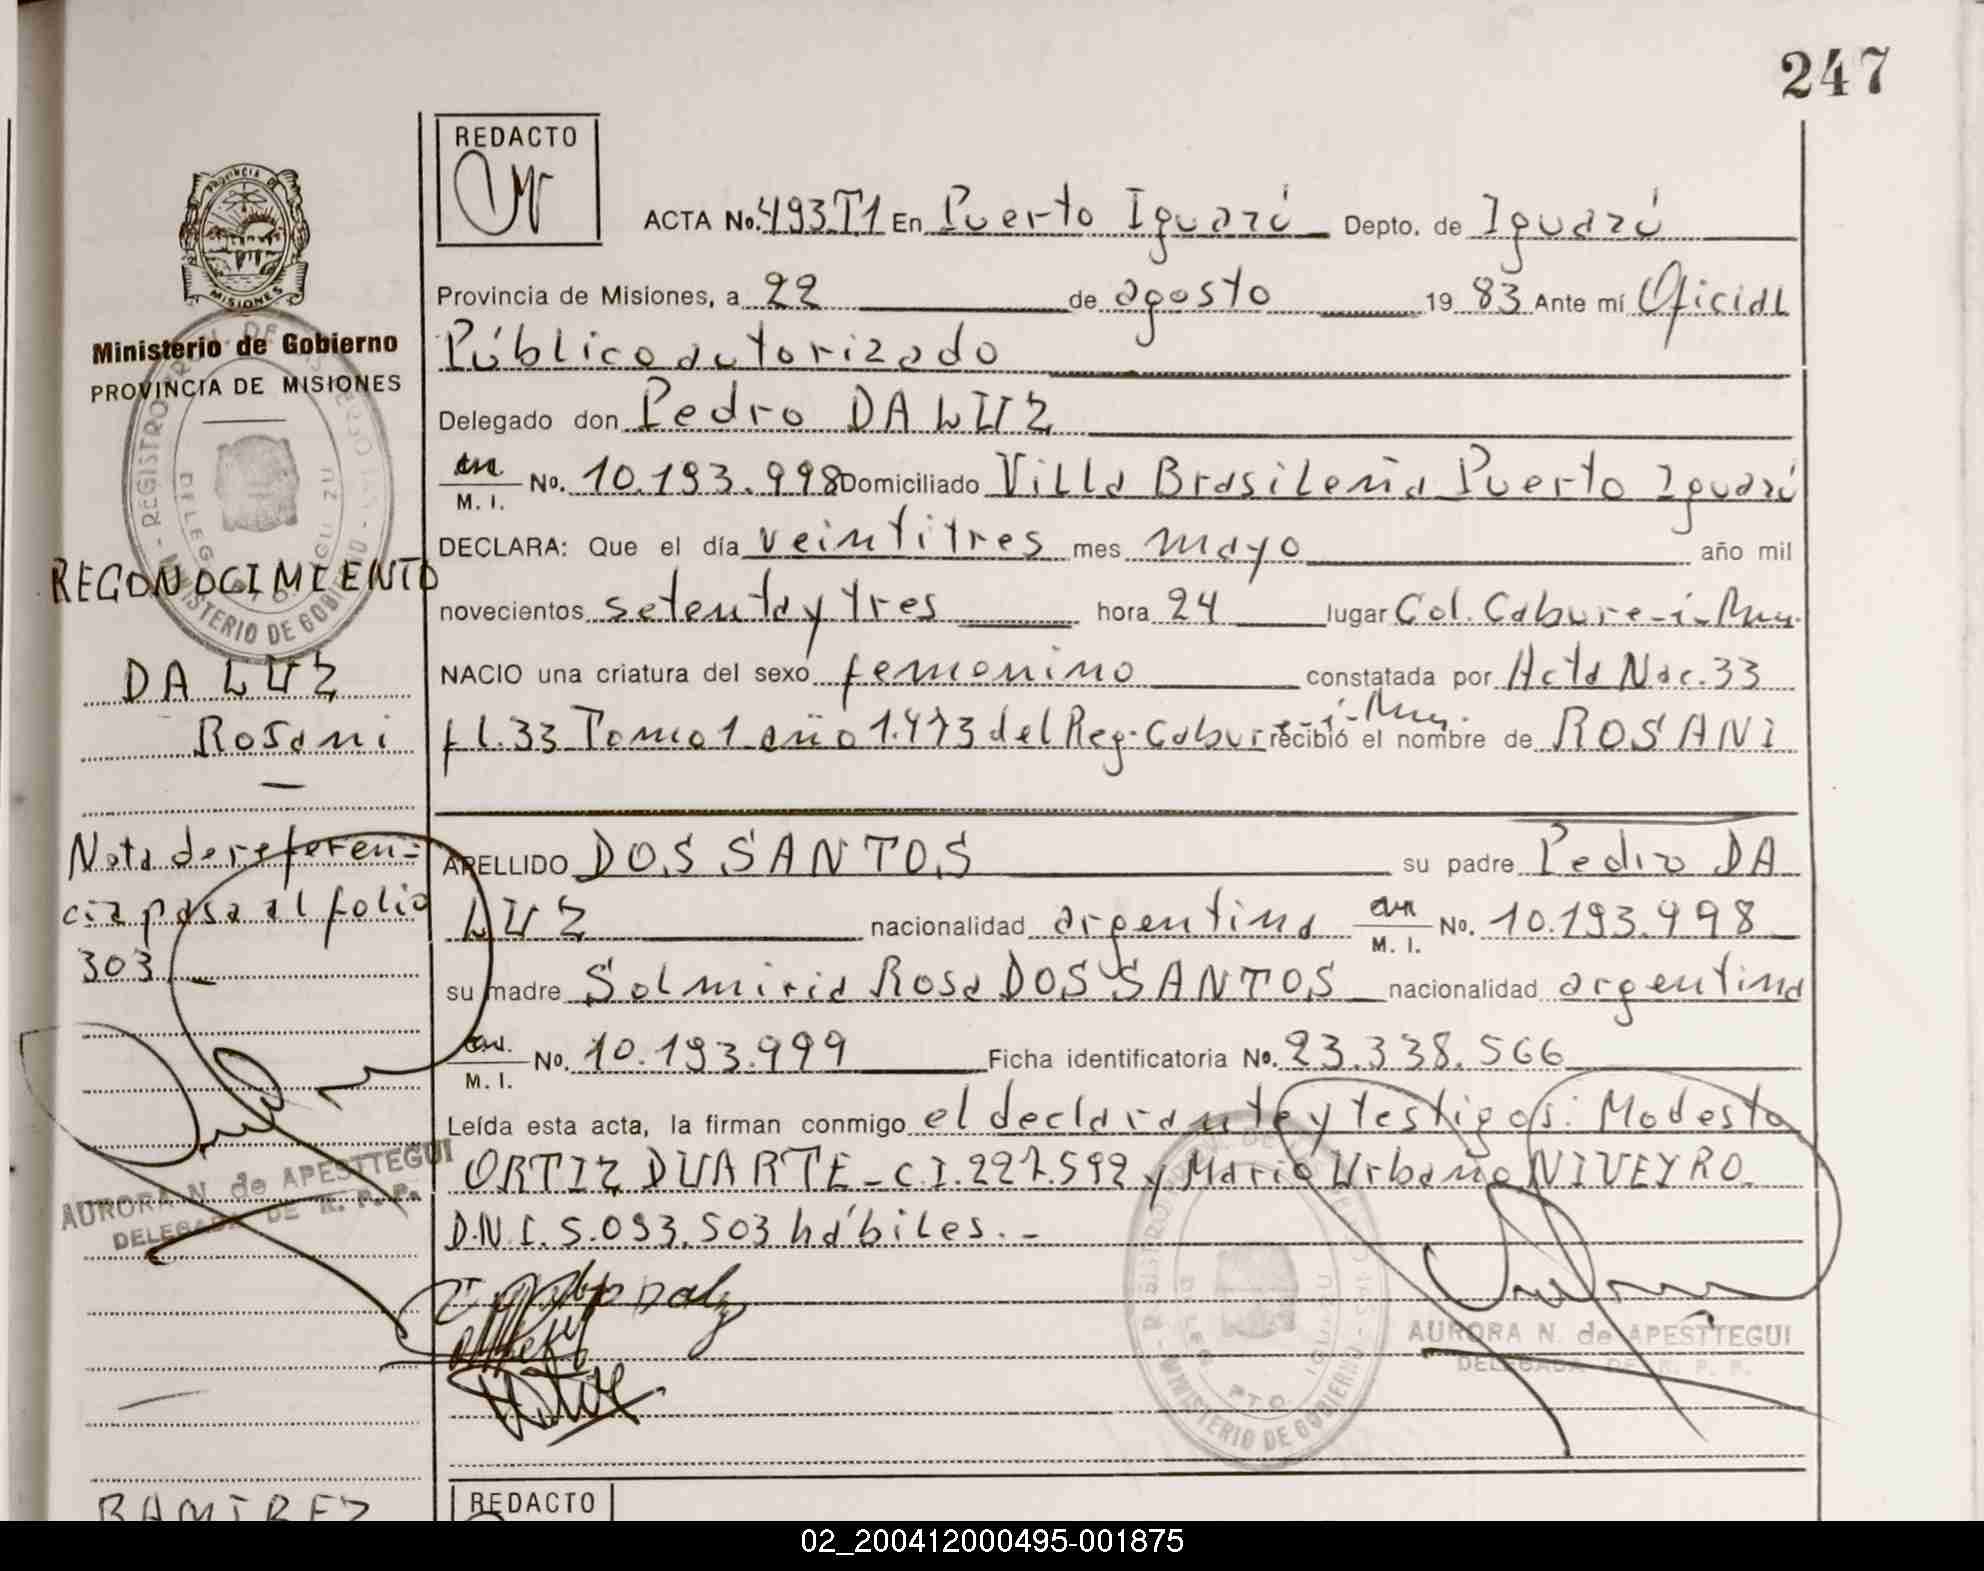 247
REDACTO
ACTA No. 493T1 En Puerto Iguazú Depto. de Iguazú
PROVINCIA DE
MISIONES
Provincia de Misiones, a 22 de agosto 19 83 Ante mí Oficial
Ministerio de Gobierno
Público autorizado
PROVINCIA DE MISIONES
Delegado don Pedro DA LUZ
M. I. No. 10.193.998 Domiciliado Villa Brasileña Puerto Iguazú
DECLARA: Que el día veintitres mes mayo año mil
RECONOCIMIENTO
MINISTERIO DE GOBIERNO
novecientos setenta y tres hora 24 lugar Col. Cabure-í-Muy.
DA LUZ
NACIO una criatura del sexo femenino constatada por Acta Nac. 33
Rosani
fl. 33 Tomo 1 año 1.973 del Reg. Cabure-í-Muy. recibió el nombre de ROSANI
Nota de referen-
APELLIDO DOS SANTOS su padre Pedro DA
cia pasa al folio
LUZ nacionalidad argentina M. I. No. 10.193.998
303
su madre Solmiria Rosa DOS SANTOS nacionalidad argentina
M. I. No. 10.193.999 Ficha identificatoria No. 23.338.566
Leída esta acta, la firman conmigo el declarante y testigos: Modesto
ORTIZ DUARTE - C.I. 227.592 y Mario Urbano NIVEYRO.
AURORA N. de APESTTEGUI
DELEGADA DE R. P. P.
D.N.I. 5.093.503 hábiles. -
AURORA N. de APESTTEGUI
DELEGADA DE R. P. P.
MINISTERIO DE GOBIERNO
PTO. IGUAZU
RAMIREZ
REDACTO
02_200412000495-001875